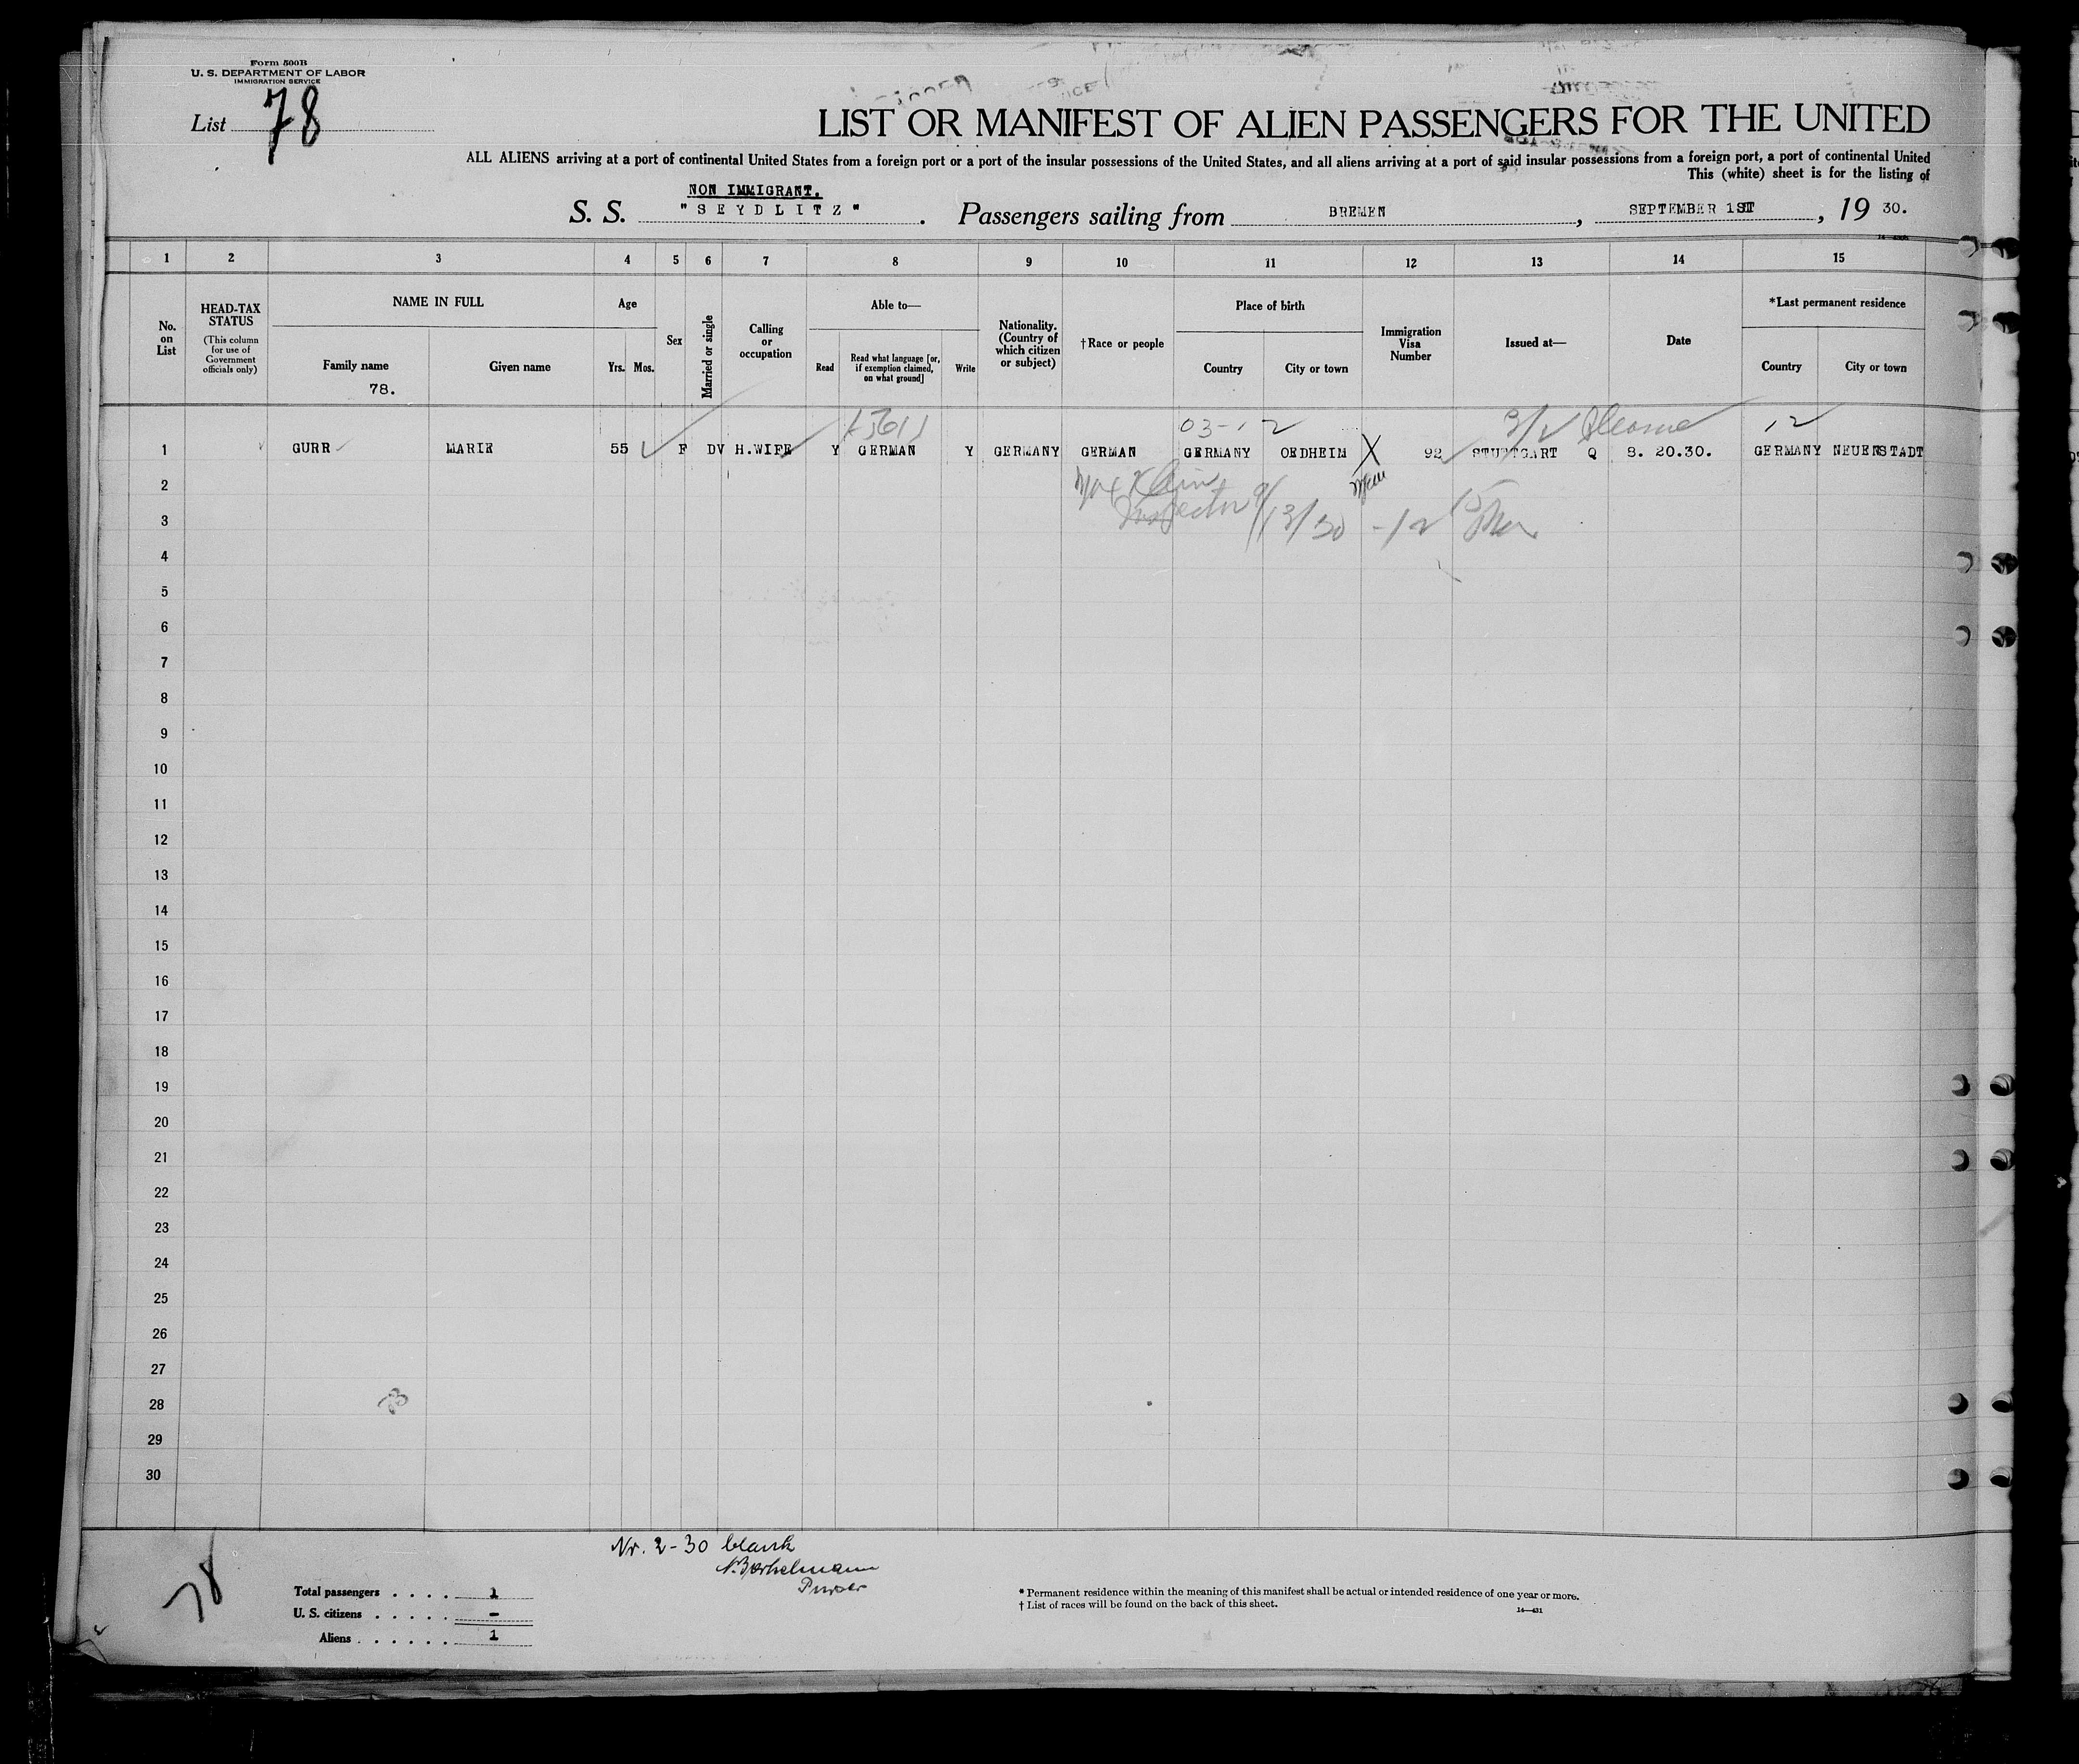 Form 500B
U. S. DEPARTMENT OF LABOR
IMMIGRATION SERVICE
List 78
LIST OR MANIFEST OF ALIEN PASSENGERS FOR THE UNITED
ALL ALIENS arriving at a port of continental United States from a foreign port or a port of the insular possessions of the United States, and all aliens arriving at a port of said insular possessions from a foreign port, a port of continental United
This (white) sheet is for the listing of
NON IMMIGRANT.
S. S. "SEYDLITZ" . Passengers sailing from BREMEN , SEPTEMBER 1ST , 19 30.
1 2 3 4 5 6 7 8 9 10 11 12 13 14 15
No. on List
HEAD-TAX STATUS
(This column for use of Government officials only)
NAME IN FULL
Family name
78.
Given name
Age
Yrs. Mos.
Sex
Married or single
Calling or occupation
Able to—
Read
Read what language [or, if exemption claimed, on what ground]
Write
Nationality. (Country of which citizen or subject)
†Race or people
Place of birth
Country
City or town
Immigration Visa Number
Issued at—
Date
*Last permanent residence
Country
City or town
03-12
12
1 GURR MARIE 55 F DV H.WIFE Y GERMAN Y GERMANY GERMAN GERMANY OEDHEIM X 92 STUTTGART Q 8. 20.30. GERMANY NEUENSTADT
2
Max Klein
Inspector 9/13/30
3
4
5
6
7
8
9
10
11
12
13
14
15
16
17
18
19
20
21
22
23
24
25
26
27
28
29
30
Nr. 2-30 blank
Purser
78
Total passengers . . . . 1
U. S. citizens . . . . . -
Aliens . . . . . . 1
* Permanent residence within the meaning of this manifest shall be actual or intended residence of one year or more.
† List of races will be found on the back of this sheet.
14—431